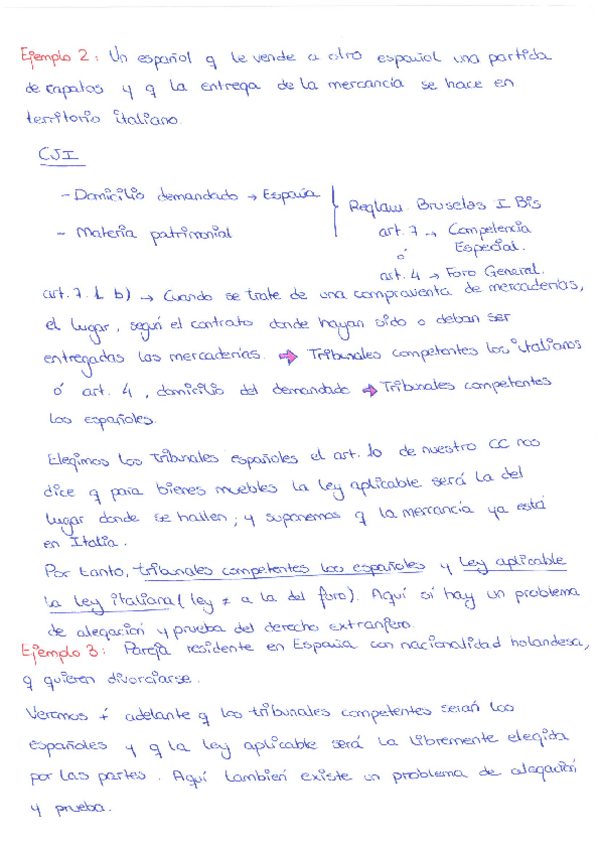 Ejemplo 2: Un español q le vende a otro español una partida
de zapatos y q la entrega de la mercancia se hace en
territorio italiano.
CJI
- Domicilio demandado → España
- Materia patrimonial
Reglam. Bruselas I Bis
art. 7 → Competencia
Especial.
ó
art. 4 → Foro General.
art. 7. 1. b) → Cuando se trate de una compraventa de mercaderías,
el lugar, según el contrato donde hayan sido o deban ser
entregadas las mercaderías. ➔ Tribunales competentes los italianos
ó art. 4, domicilio del demandado ➔ Tribunales competentes
los españoles.
Elegimos los tribunales españoles el art. 10 de nuestro CC nos
dice q para bienes muebles la ley aplicable será la del
lugar donde se hallen; y suponemos q la mercancia ya está
en Italia.
Por tanto, tribunales competentes los españoles y ley aplicable
la ley italiana (ley ≠ a la del foro). Aquí sí hay un problema
de alegación y prueba del derecho extranjero.
Ejemplo 3: Pareja residente en España con nacionalidad holandesa,
q quieren divorciarse.
Veremos + adelante q los tribunales competentes serán los
españoles y q la ley aplicable será la libremente elegida
por las partes. Aquí también existe un problema de alegación
y prueba.